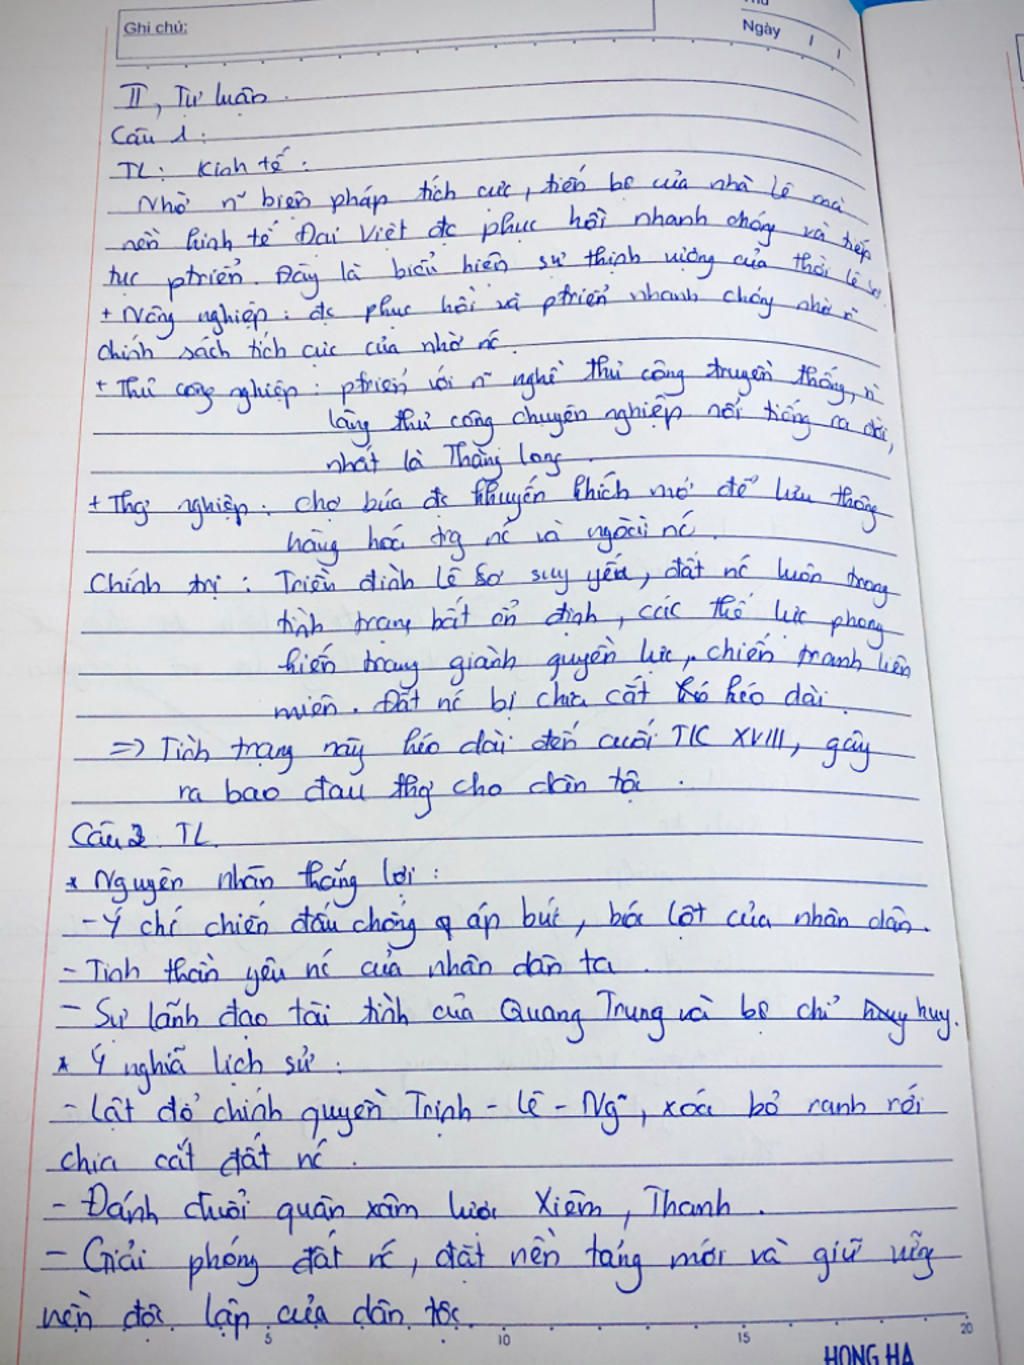 Ghi chú:
Thứ
Ngày / /
II, Tự luận.
Câu 1:
TL: Kinh tế:
Nhờ n~ biện pháp tích cực, tiến bộ của nhà Lê mà
nền kinh tế Đại Việt đc phục hồi nhanh chóng và tiếp
tục ptriển. Đây là biểu hiện sự thịnh vượng của thời Lê sơ
+ Nông nghiệp: đc phục hồi và ptriển nhanh chóng nhờ n~
chính sách tích cực của nhờ nc.
+ Thủ công nghiệp: ptriển với n~ nghề thủ công truyền thống, n~
làng thủ công chuyên nghiệp nổi tiếng ra đời,
nhất là Thăng Long.
+ Thg nghiệp: chợ búa đc khuyến khích mở để lưu thông
hàng hoá trg nc và ngoài nc.
Chính trị: Triều đình Lê sơ suy yếu, đất nc luôn trong
tình trạng bất ổn định, các thế lực phong
kiến trang giành quyền lực, chiến tranh liên
miên. Đất nc bị chia cắt kéo dài.
=> Tình trạng này kéo dài đến cuối TK XVIII, gây
ra bao đau thg cho dân tộc.
Câu 2 TL
* Nguyên nhân thắng lợi:
- Ý chí chiến đấu chống áp bức, bóc lột của nhân dân.
- Tinh thần yêu nc của nhân dân ta.
- Sự lãnh đạo tài tình của Quang Trung và bộ chỉ huy.
* Ý nghĩa lịch sử:
- Lật đổ chính quyền Trịnh - Lê - Ng~, xoá bỏ ranh rới
chia cắt đất nc.
- Đánh đuổi quân xâm lược Xiêm, Thanh.
- Giải phóng đất nc, đặt nền tảng mới và giữ vững
nền độc lập của dân tộc.
5 10 15 20
HONG HA